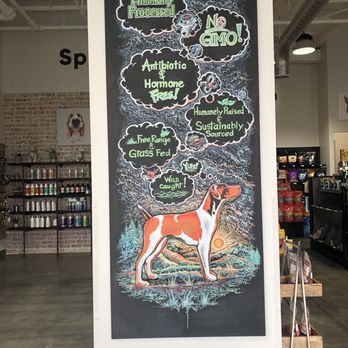 Minimally
Processed
No
GMO!
Antibiotic
&
Hormone
Free!
Humanely Raised
&
Sustainably
Sourced
Free Range
&
Grass Fed
Yum!
Wild
Caught!
Sp